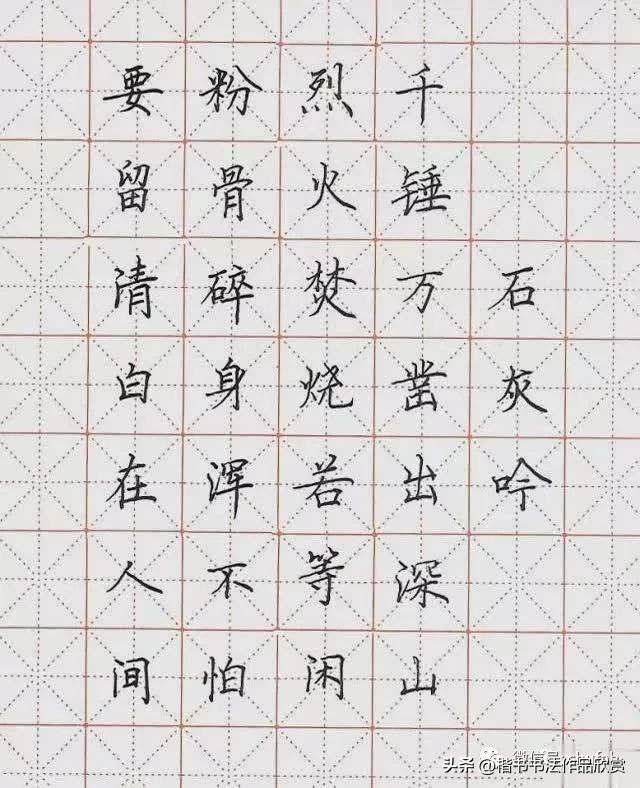 石灰吟
千锤万凿出深山
烈火焚烧若等闲
粉骨碎身浑不怕
要留清白在人间
头条 @楷书书法作品欣赏